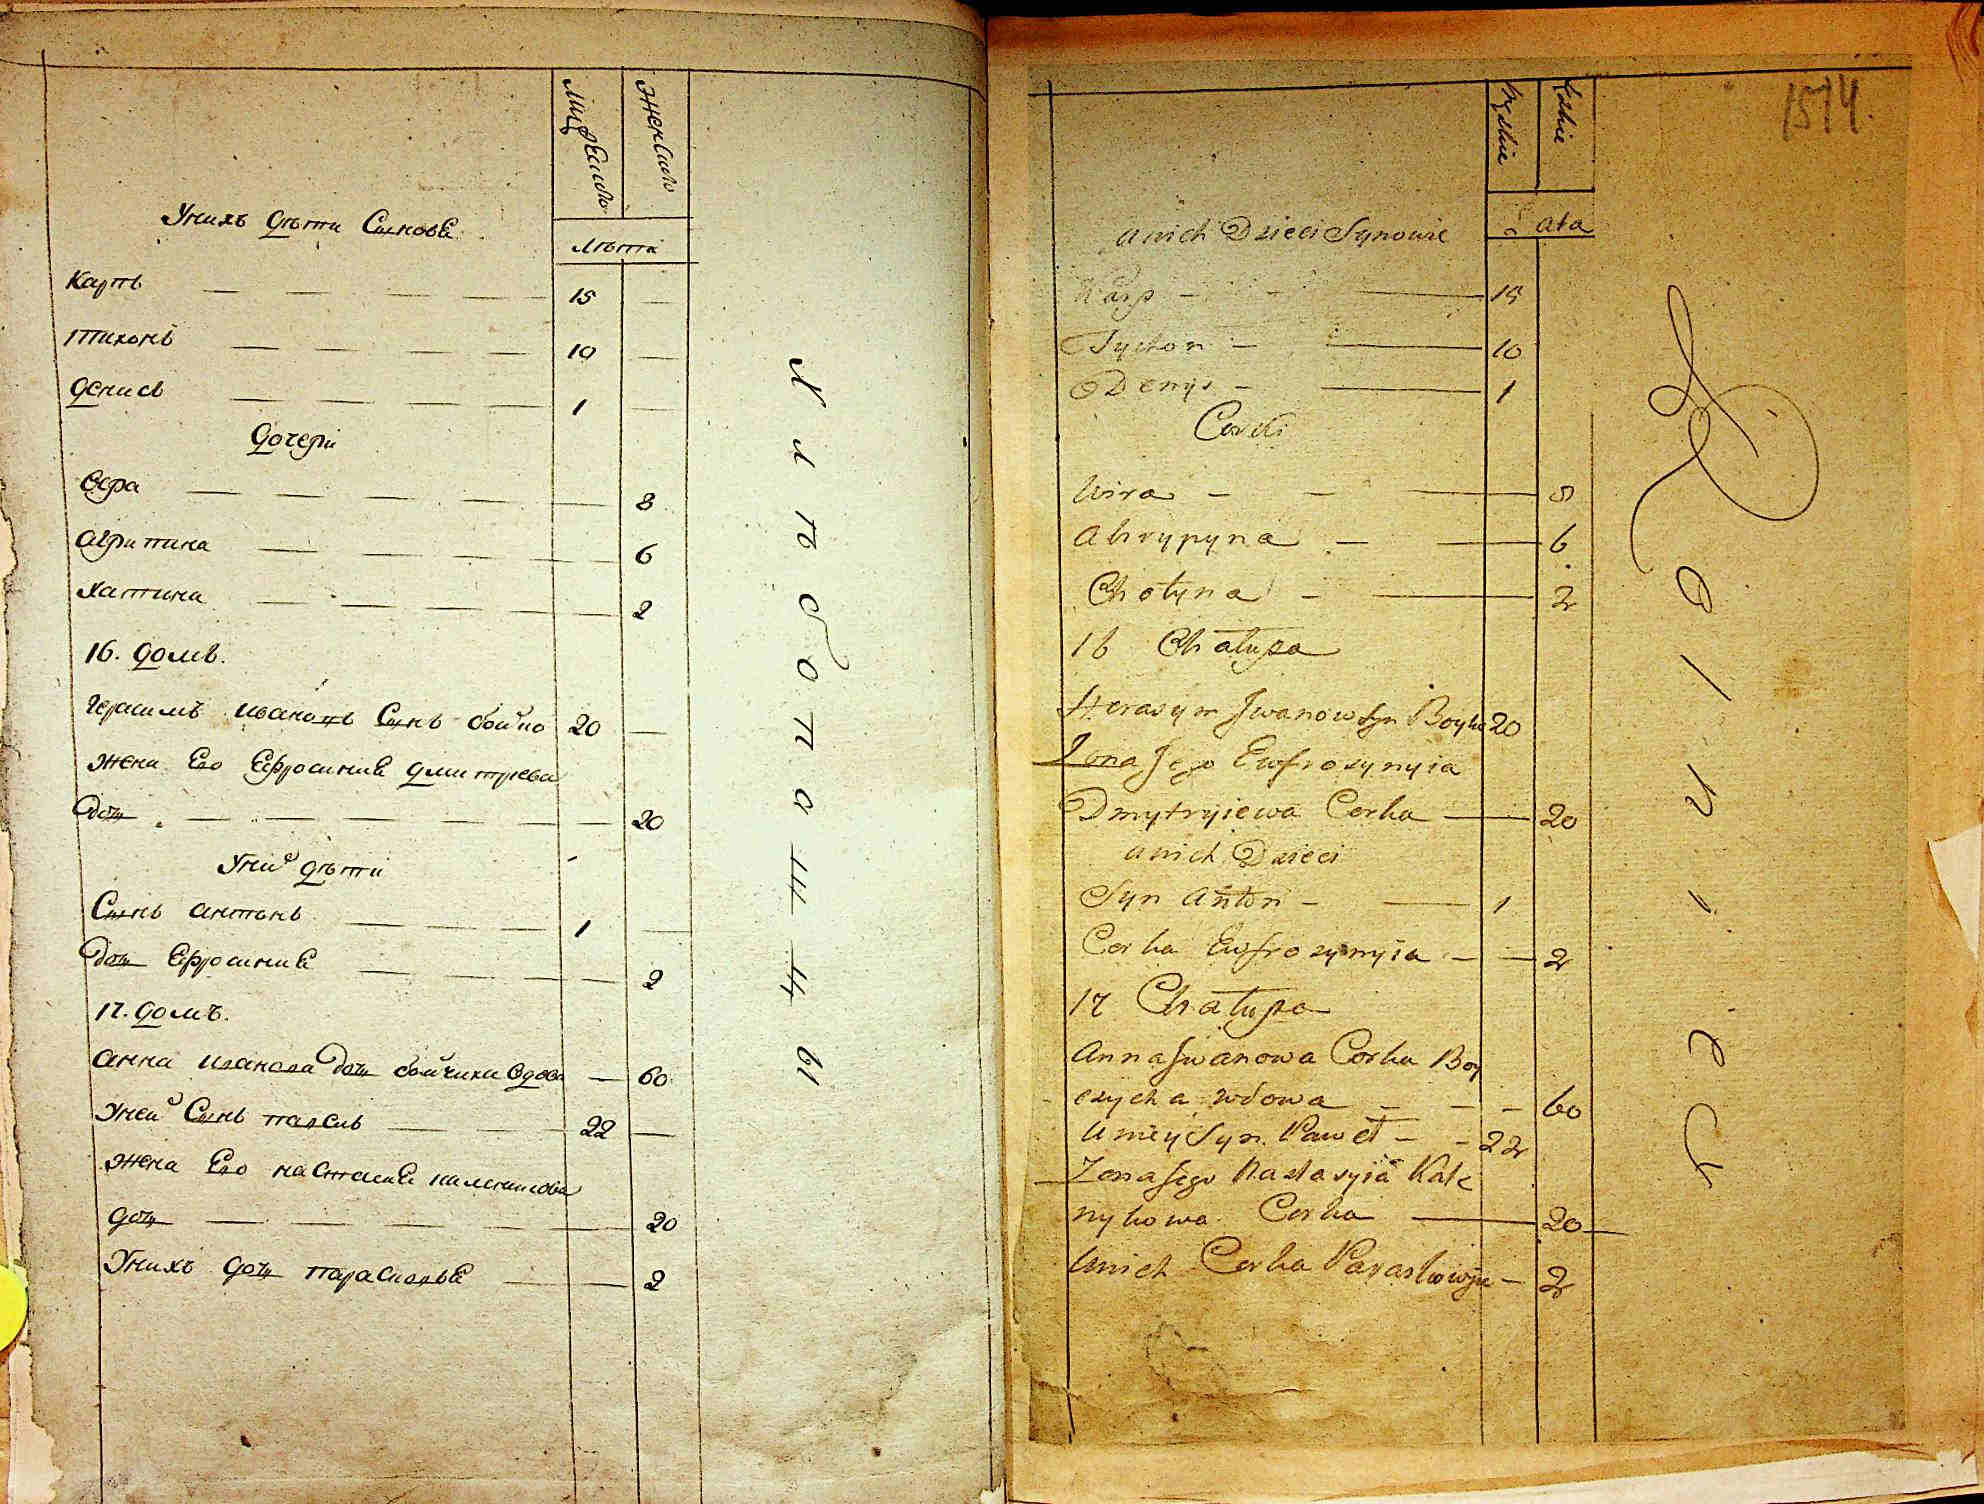 Мужеско
Женско
Унихъ дѣти Синове
Лѣта
Карпъ — — — — 15 —
тихонъ — — — — 10 —
денисъ — — — — 1 —
дочери
вера — — — — 8
агрипина — — — — 6
хатина — — — — 2
16. домъ.
герасимъ ивановъ Синъ бойко 20 —
жена Его Ефросиния дмитрева
доч — — — — 20
Уних дѣти
Синъ антонъ — — 1 —
доч Ефросиния — — — 2
17. домъ.
анна иванова доч бойчиха вдова — 60
Уней Синъ павелъ — — 22 —
жена Его настасия каленикова
доч — — — — 20
Унихъ доч парасковья — — 2
Хлѣбопашцы
1514.
Męzkie
Żeńskie
Lata
u nich Dzieci Synowie
Karp — — 15
Tychon — — 10
Denys — — 1
Corki
Wira — — — 8
Ahrypyna — — 6
Chotyna — — 2
16 Chałupa
Herasym Jwanow Syn Boyko 20
Zona Jego Ewfrosynyia
Dmytryiewa Corka — 20
u nich Dzieci
Syn Anton — — 1
Corka Ewfrosynyia — — 2
17 Chałupa
Anna Jwanowa Corka Boy
czycha wdowa — — — 60
U niey Syn Paweł — — 22
Zona Jego Nastasyia Kale
nykowa Corka — 20
U nich Corka Paraskowija — 2
Rolnicy